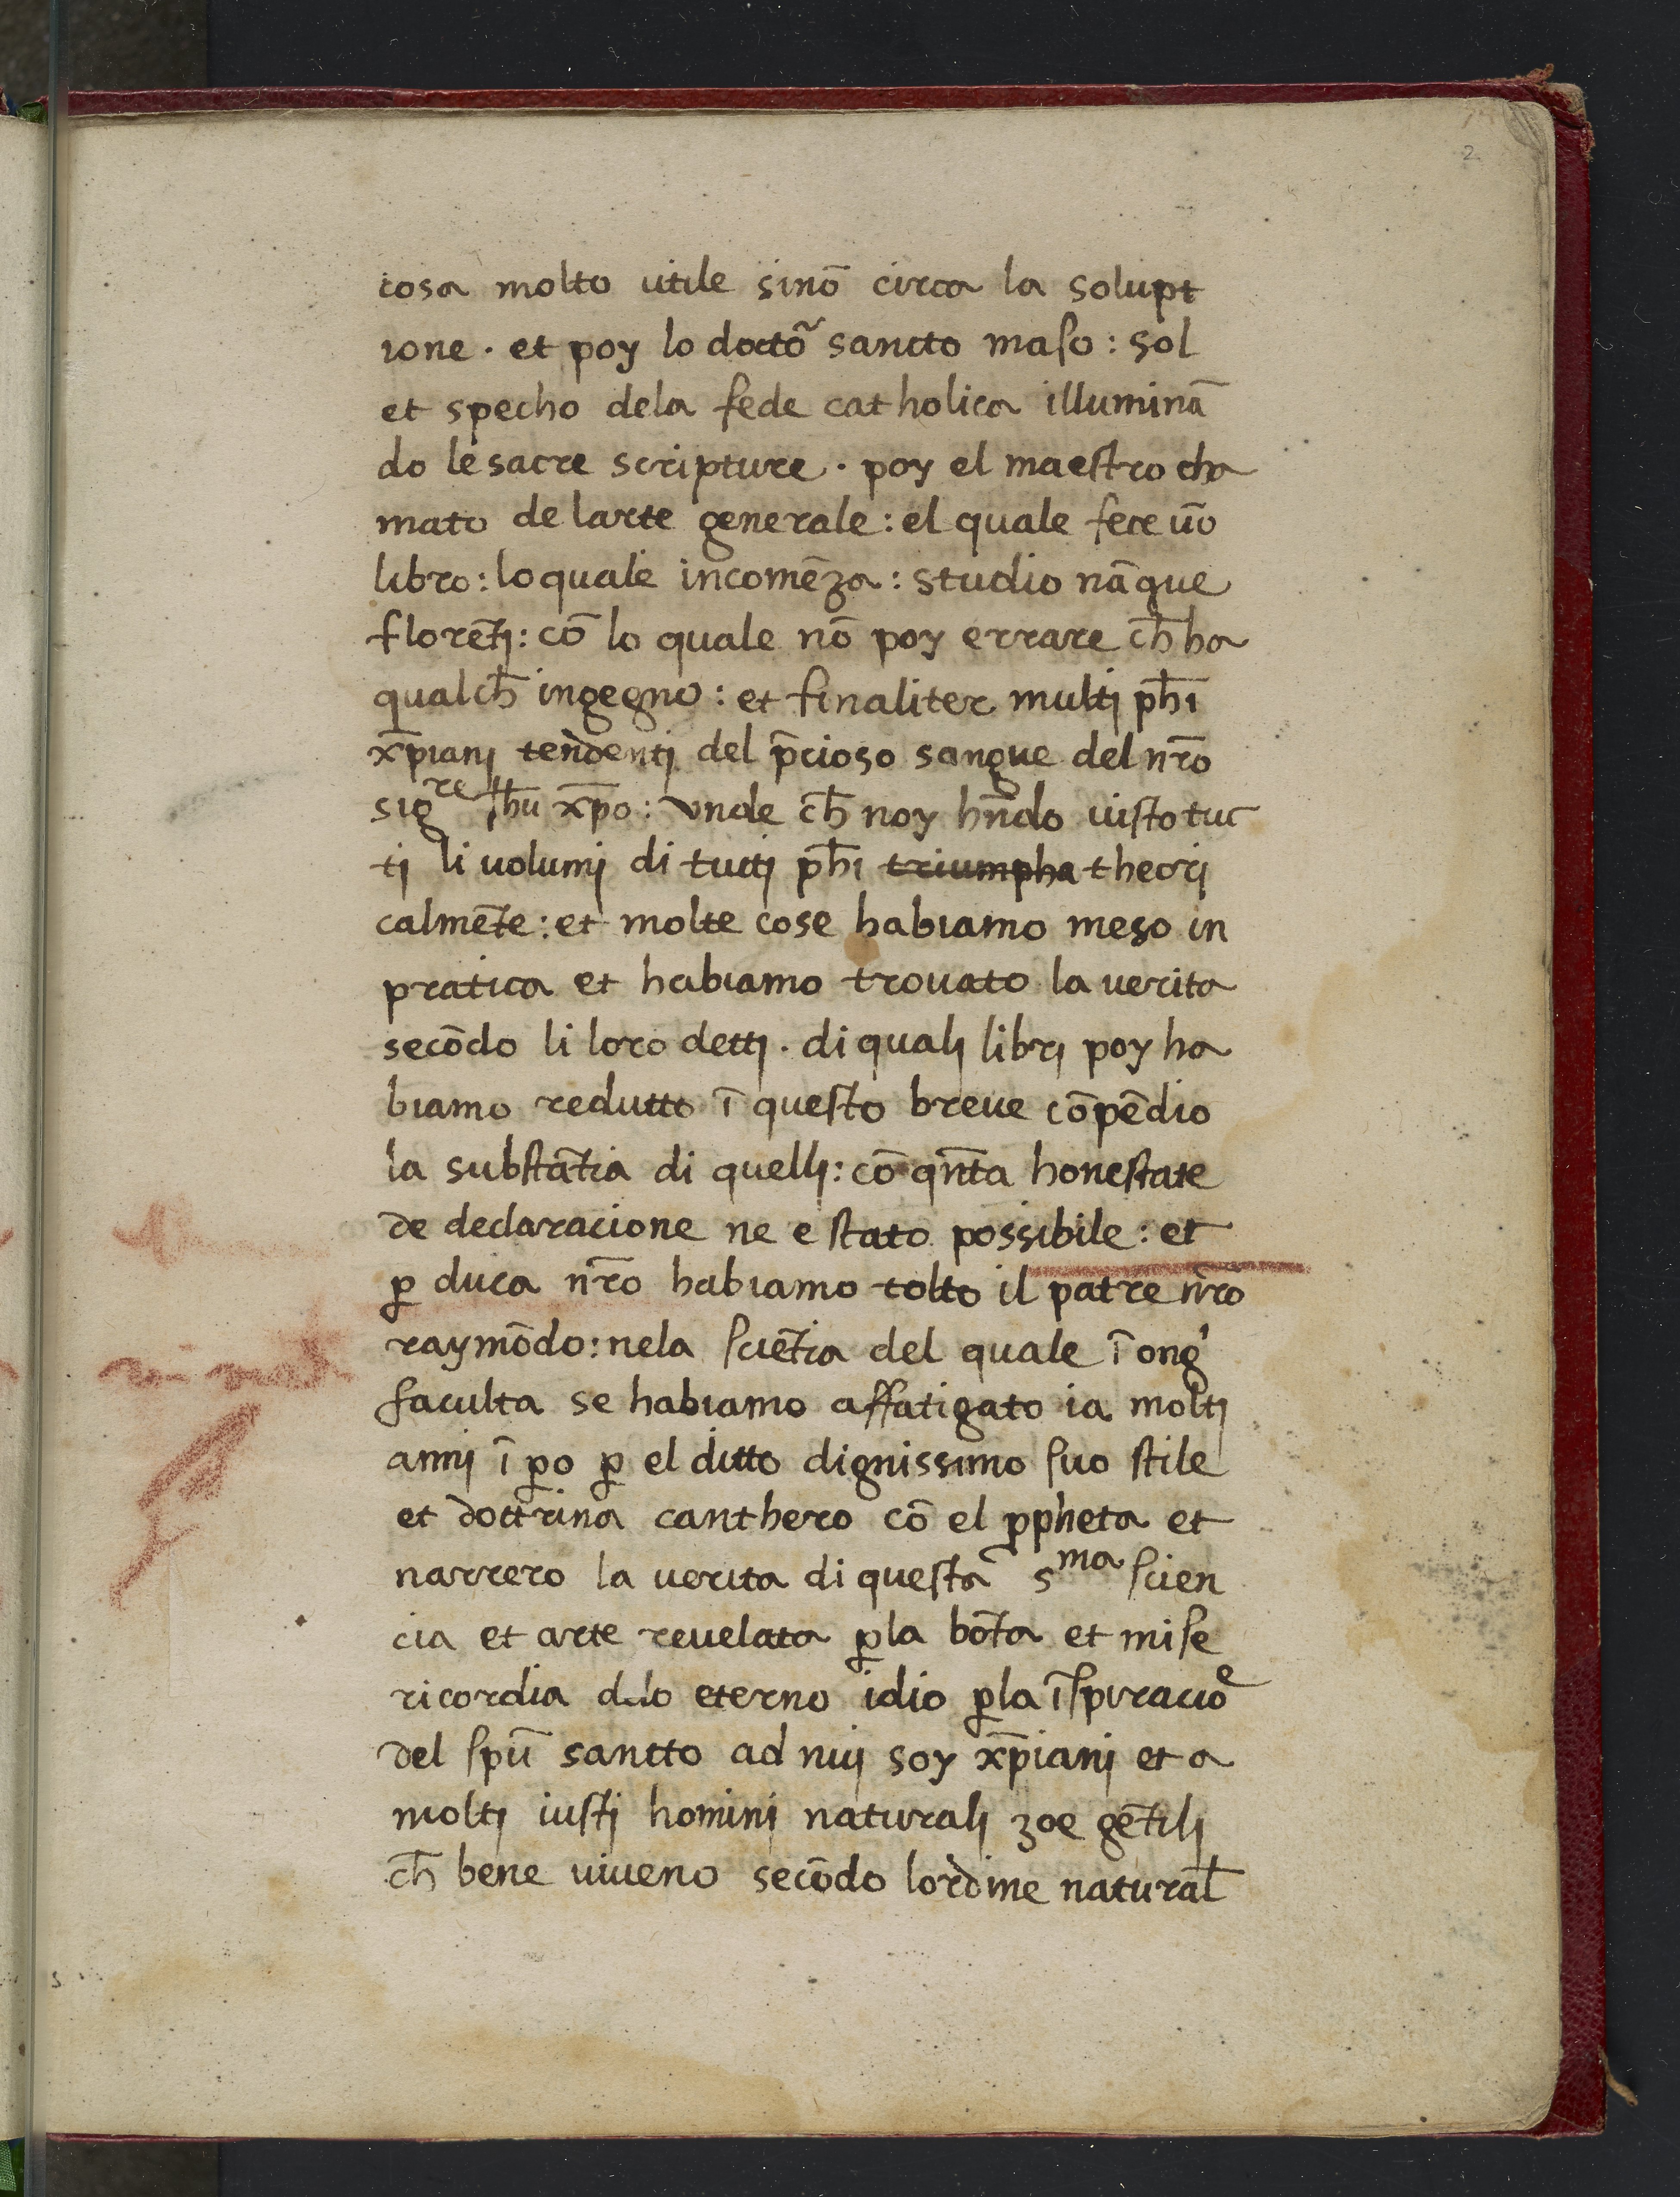 2
cosa molto utile sinō circa la solupt
ione . et poy lo docto᷉ sancto maſo : sol
et specho dela fede catholica illuminā
do le sacre scripture . poy el maeſtro cha
mato de larte generale : el quale fece ūo
libro : lo quale incomēza : studio nāque
florētj : cō lo quale nō poy errare ch̄ ha
qualch̄ ingegno : et finaliter multj ph̄i
xp̄ianj tendentj del p̄cioso sangue del nr̄o
sigre Ih̄u xp̄o : vnde ch̄ noy hn̄do uiſto tuc
tj li uolumj di tuttj ph̄i triumpha theorj
calmēte : et molte cose habiamo meso in
pratica et habiamo trouato la uerita
secōdo li loro dettj . di qualj librj poy ha
biamo redutto ī queſto breue cōpēdio
la subſtātia di quellj : cō qn̄ta honeſtate
de declaracione ne e ſtato possibile : et
ꝑ duca nr̄o habiamo tolto il patre nr̄o
raymōdo : nela ſciētia del quale ī ong'
faculta se habiamo affatigato ia moltj
annj ī ꝑo ꝑ el ditto dignissimo ſuo ſtile
et dottrina canthero cō el ꝓpheta et
narrero la uerita di queſta sma ſcien
cia et arte reuelata ꝑ la bōta et miſe
ricordia delo eterno idio ꝑ la īſpiracioe
del ſpū sancto ad nuj soy xp̄ianj et a
moltj iuſtj hominj naturalj zoe gētilj
ch̄ bene uiueno secōdo lordine natural̄